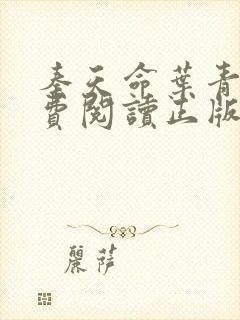 奉天命葉青
費閱讀正版
麗薩